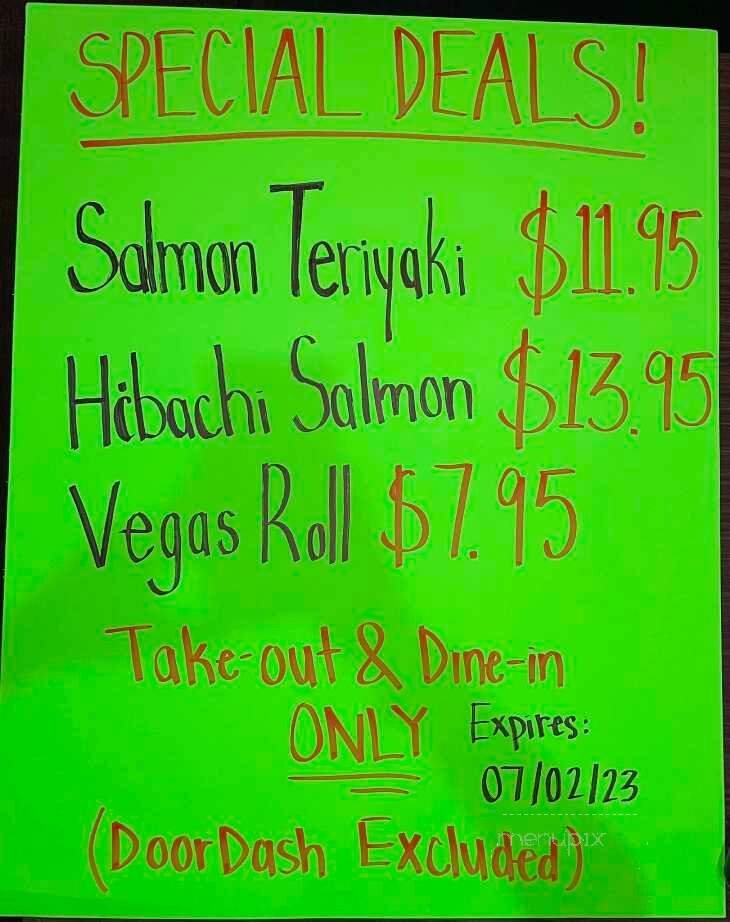 SPECIAL DEALS!
Salmon Teriyaki $11.95
Hibachi Salmon $13.95
Vegas Roll $7.95
Take-out & Dine-in
ONLY Expires:
07/02/23
menupix
(DoorDash Excluded)